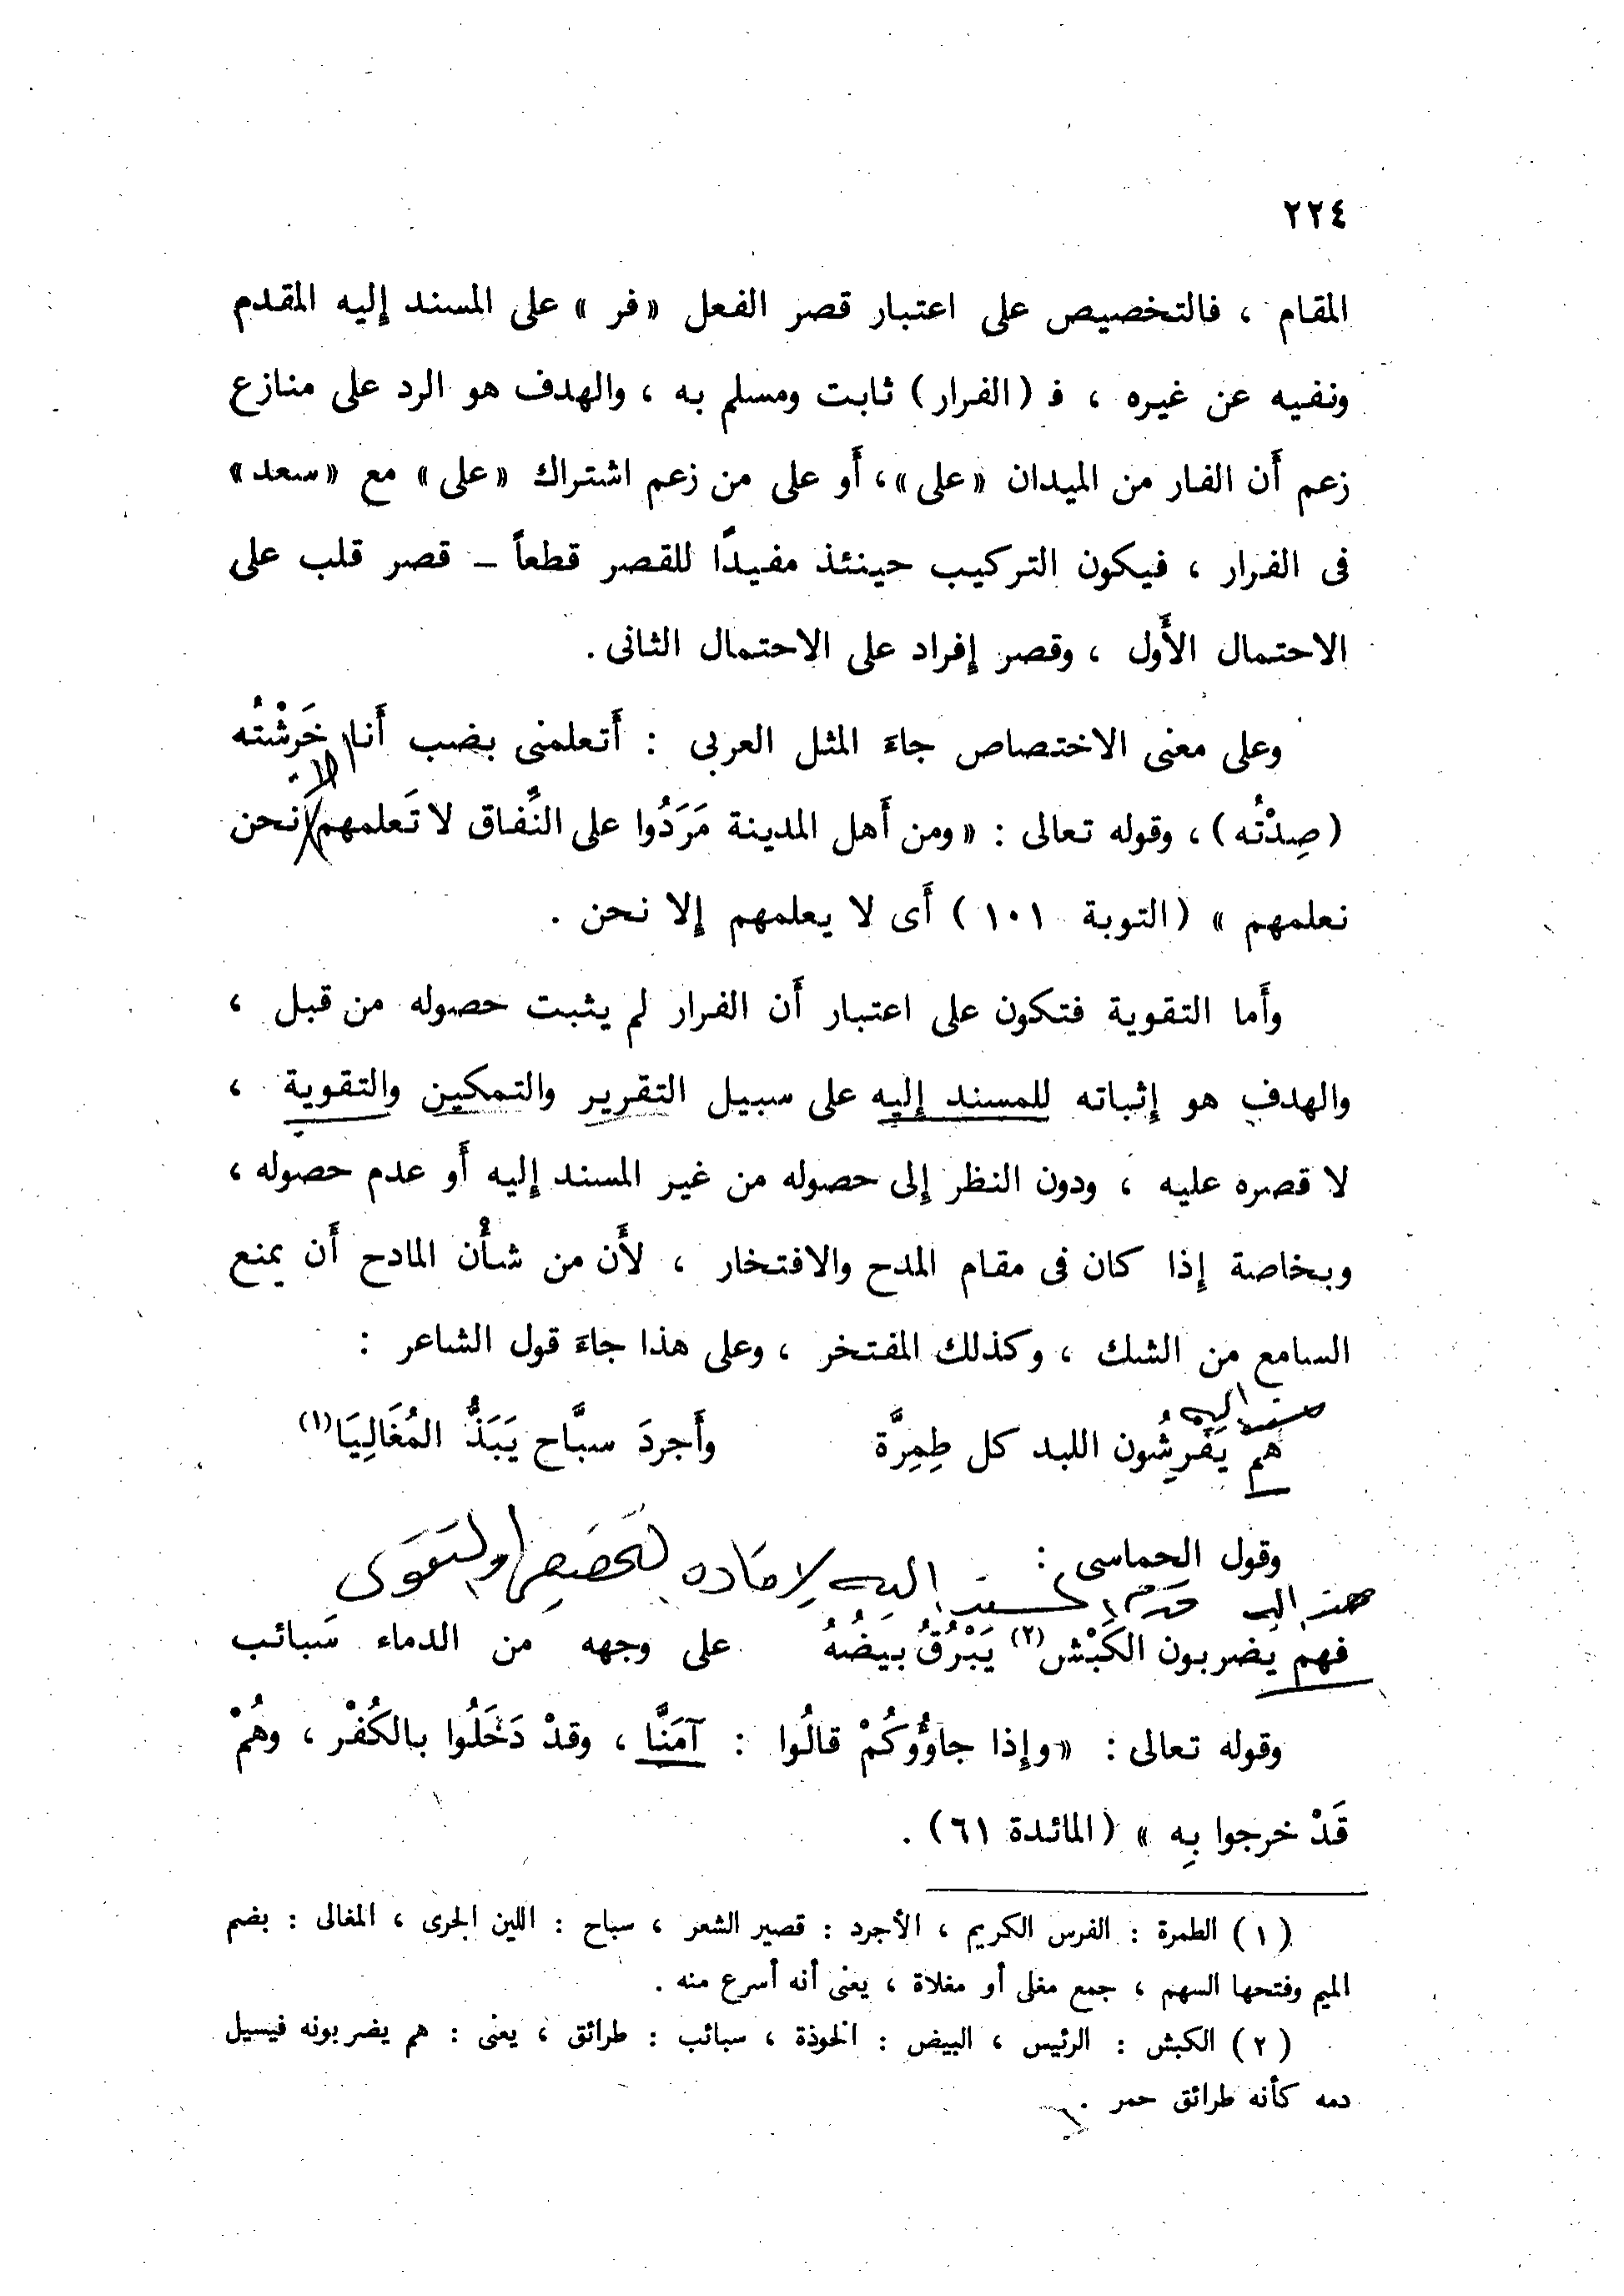 ٢٢٤
المقام ، فالتخصيص على اعتبار قصر الفعل « فر » على المسند إليه المقدم
ونفيه عن غيره ، فـ (الفرار) ثابت ومسلم به ، والهدف هو الرد على منازع
زعم أن الفار من الميدان «على»، أو على من زعم اشتراك «على» مع «سعد»
فى الفرار ، فيكون التركيب حينئذ مفيدًا للقصر قطعاً – قصر قلب على
الاحتمال الأول ، وقصر إفراد على الاحتمال الثانى .
وعلى معنى الاختصاص جاءَ المثل العربى : أتعلمنى بضب أنا خَرَشْتُه
(صِدْتُه) ، وقوله تعالى : « ومن أهل المدينة مَرَدُوا على النِّفاق لا تَعلمهم نحن
نعلمهم » (التوبة ١٠١) أى لا يعلمهم إلا نحن .
وأما التقوية فتكون على اعتبار أن الفرار لم يثبت حصوله من قبل ،
والهدف هو إثباته للمسند إليه على سبيل التقرير والتمكين والتقوية ،
لا قصره عليه ، ودون النظر إلى حصوله من غير المسند إليه أو عدم حصوله ،
وبخاصة إذا كان فى مقام المدح والافتخار ، لأن من شأْن المادح أن يمنع
السامع من الشك ، وكذلك المفتخر ، وعلى هذا جاءَ قول الشاعر :
مسند اليه
هم يَفْرِشُون اللبد كل طِمِرَّة وأَجردَ سبَّاح يَبَذُّ المُغَالِيَا(١)
وقول الحماسى :
مسند اليه قدم المسند اليه لإفاده التخصيص او التقوى
فهم يضربون الكَبْش(٢) يَبْرُقُ بيَضُهُ على وجهه من الدماء سَبائب
وقوله تعالى : « وإذا جاؤُوكُمْ قالُوا : آمَنَّا ، وقدْ دَخَلُوا بالكُفْر ، وهُمْ
قَدْ خرجوا بِه » (المائدة ٦١) .
(١) الطمرة : الفرس الكريم ، الأجرد : قصير الشعر ، سباح : اللين الجرى ، المغالى : بضم
الميم وفتحها السهم ، جمع مغلى أو مغلاة ، يعنى أنه أسرع منه .
(٢) الكبش : الرئيس ، البيض : الخوذة ، سبائب : طرائق ، يعنى : هم يضربونه فيسيل
دمه كأنه طرائق حمر .